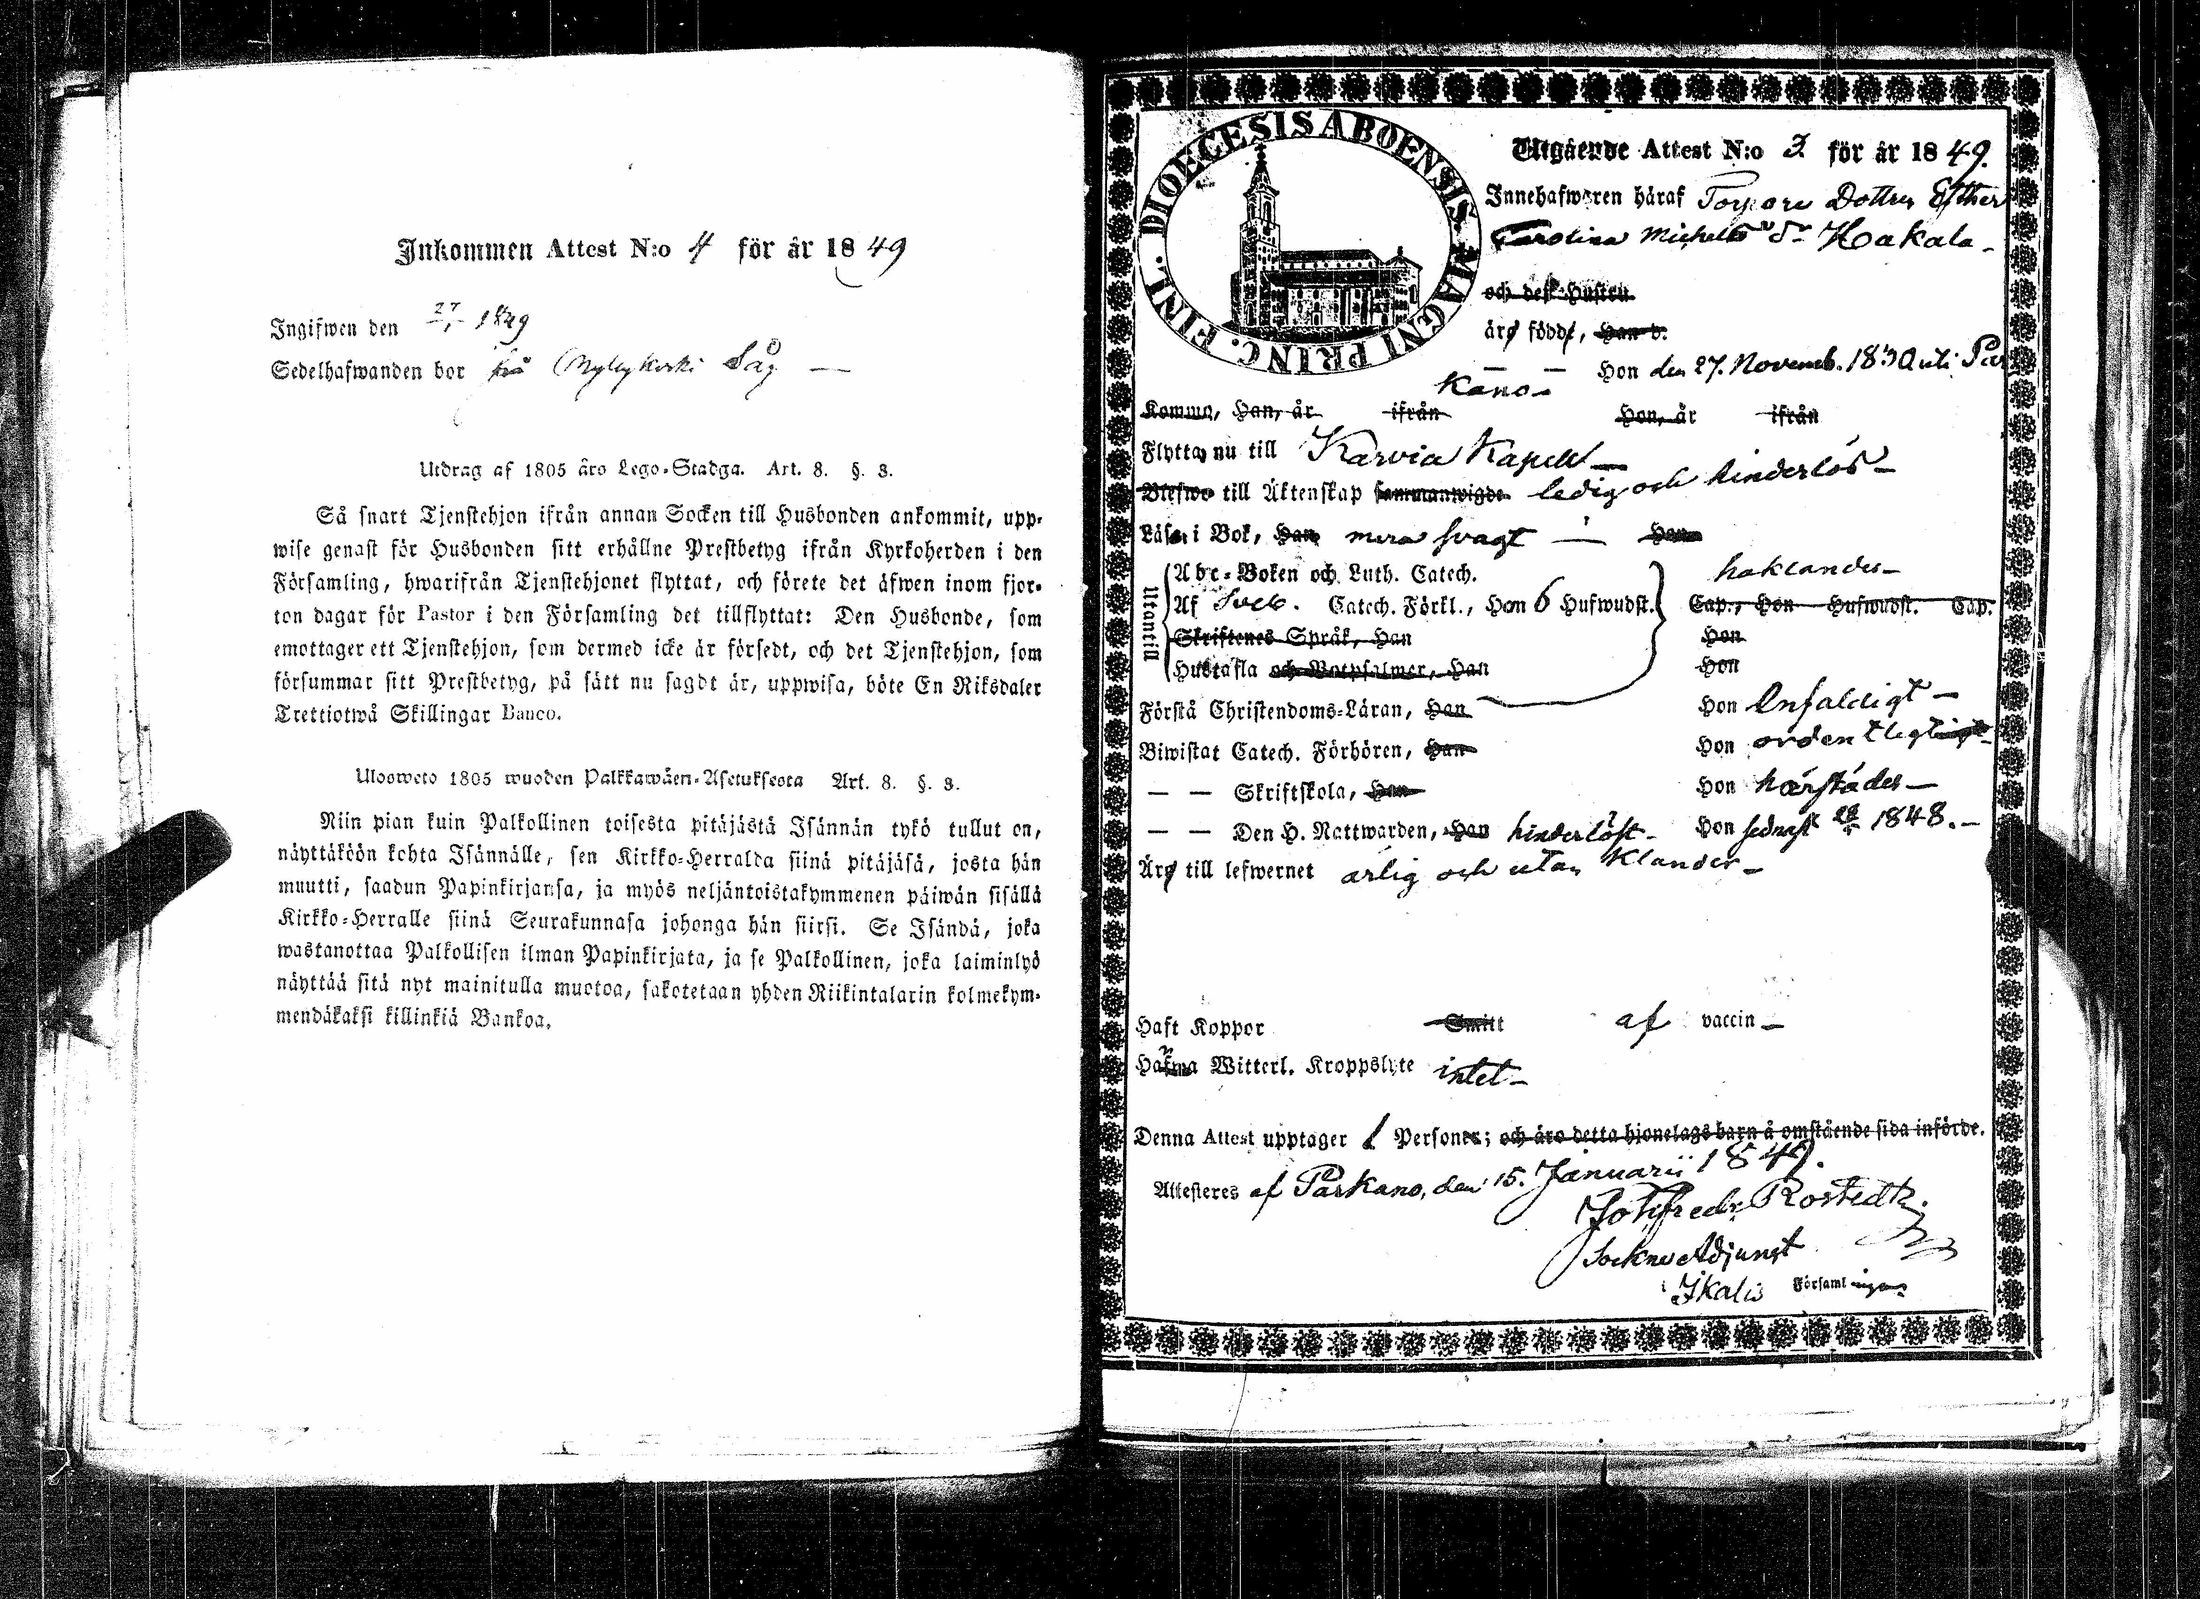 Inkommen Attest N:o 4 för år 1849
Ingifwen den 27/1 1849
Sedelhafwanden bor Såg
Utdrag af 1805 års Lego-Stadga. Art. 8. §. 3.
Så snart Tjenstehjon ifrån annan Socken till Husbonden ankommit, upp-
wise genast för Husbonden sitt erhållne Prestbetyg ifrån Kyrkoherden i den
Församling, hwarifrån Tjenstehjonet flyttat, och förete det äfwen inom fjor-
ton dagar för Pastor i den Församling det tillflyttat: Den Husbonde, som
emottager ett Tjenstehjon, som dermed icke är försedt, och det Tjenstehjon, som
försummar sitt Prestbetyg, på sätt nu sagdt är, uppwisa, böte En Riksdaler
Trettiotwå Skillingar Banco.
Ulosweto 1805 wuoden Palkkawäen-Asetuksesta Art. 8. §. 3.
Niin pian kuin Palkollinen toisesta pitäjästä Isännän tykö tullut on,
näyttäköön kohta Isännälle, sen Kirkko-Herralda siinä pitäjäsä, josta hän
muutti, saadun Papinkirjansa, ja myös neljäntoistakymmenen päiwän sisällä
Kirkko-Herralle siinä Seurakunnasa johonga hän siirsi. Se Isändä, joka
wastanottaa Palkollisen ilman Papinkirjata, ja se Palkollinen, joka laiminlyö
näyttää sitä nyt mainitulla muotoa, sakotetaan yhden Riikintalarin kolmekym-
mendäkaksi killinkiä Bankoa.
DIOECESIS ABOENSIS. MAGNI PRINC. FINL.
Utgående Attest N:o 3. för år 1849.
Innehafwaren häraf Torpare Dottren Esther
Carolina Michelsdr Hakala
och dess Hustru
äro födde, Han d.
Hon den 27. Novemb. 1830 uti Par
kano
Komne, Han, år ifrån Hon, år ifrån
Flytta nu till Karvia Kapell
Blefwo till Äktenskap sammanwigde ledig och hinderlös
Läsa i Bok, Han mera svagt Hon
Utantill
Abc-Boken och Luth. Catech. hoklandes
Af Sveb. Catech. Förkl., Hon 6 Hufwudst. Cap., Hon Hufwudst. Cap.
Skriftenes Språk, Han Hon
Hustafla och Botpsalmer, Han Hon
Förstå Christendoms-Läran, Han Hon Enfaldigt
Biwistat Catech. Förhören, Han Hon ordentligt
— — Skriftskola, Han Hon härstädes
— — Den H. Nattwarden, Han hinderlöst Hon sednast 1848.
Äro till lefwernet ärlig och utan Klander
Haft Koppor Smitt af vaccin
Hafwa Witterl. Kroppslyte intet
Denna Attest upptager 1 Personer; och äro detta hjonelags barn å omstående sida införde.
Attesteres af Parkano, den 15. Januarii 1849.
Joh Fredr Rostedt
Sockne Adjunct
Ikalis Församlingen